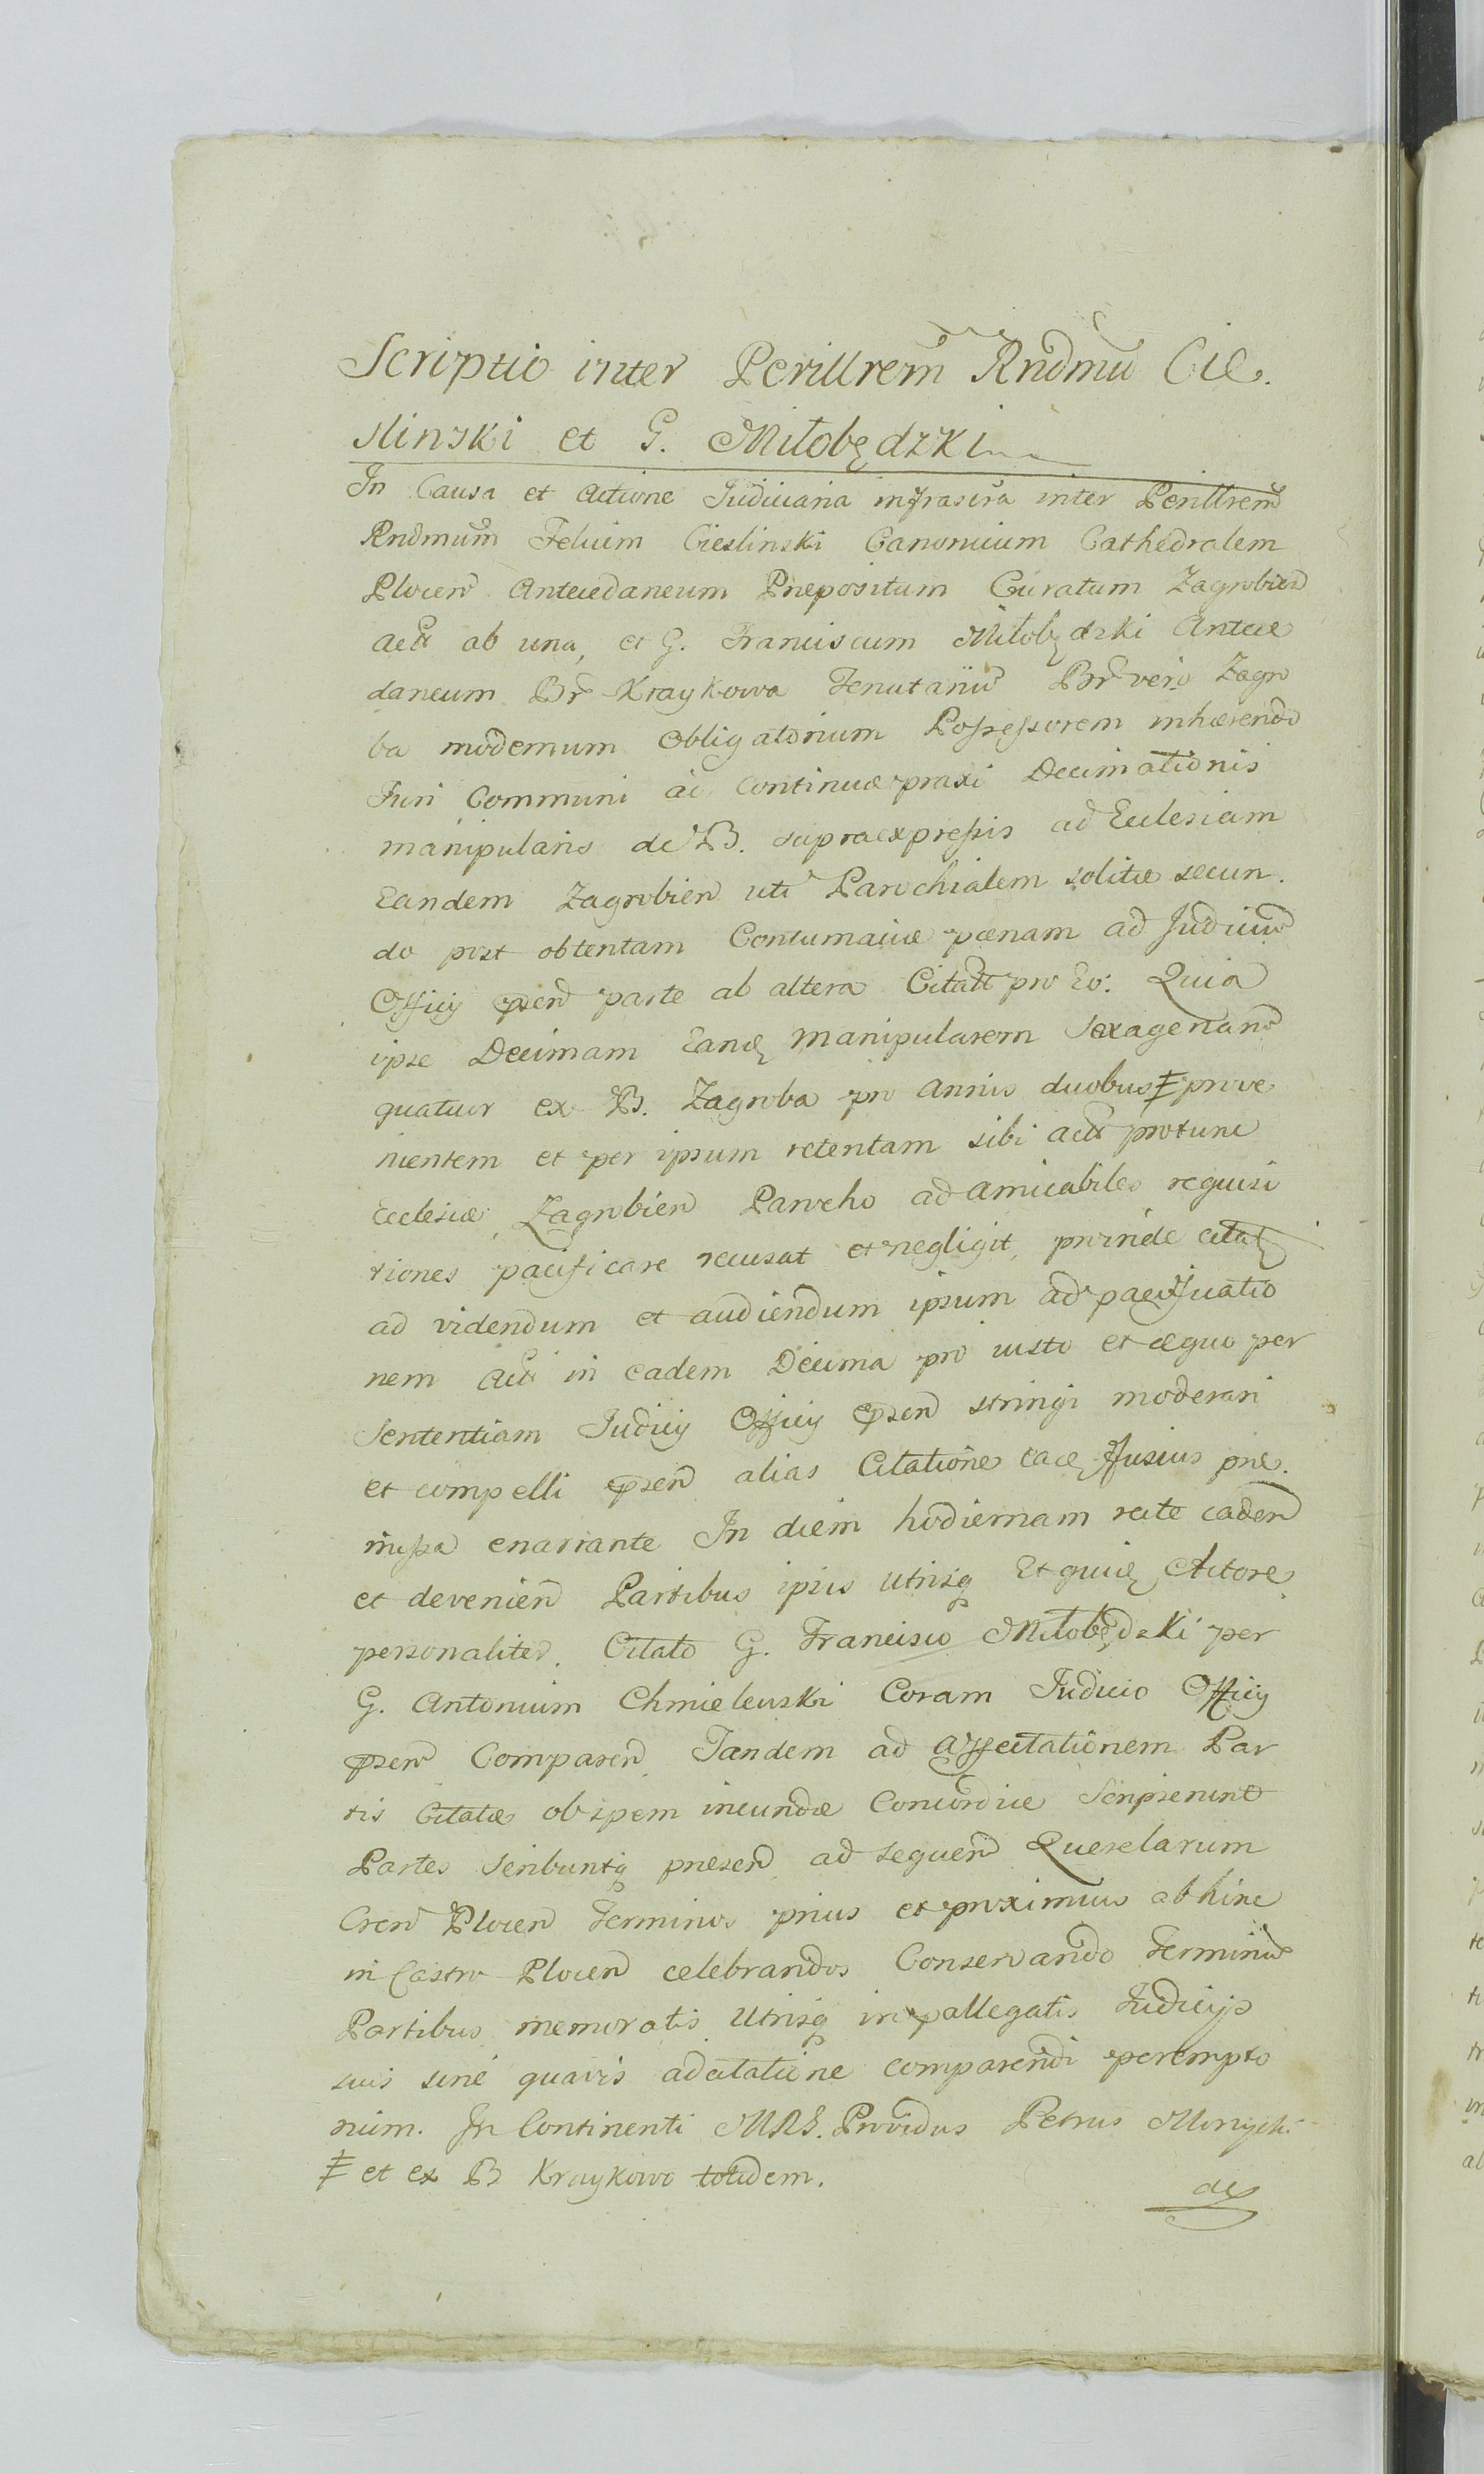 Scriptio inter Perillrem Rndmu Cie.
slinski et G. Miłobędzki
In Causa et Actione Judiciaria infrascra inter Perillrem
Rndmum Felicim Cieslinski Canonicum Cathedralem
Plocen Antecedaneum Præpositum Curatum Zagrobien
ab una, et G. Franciscum Miłobędzki Antece
daneum Br Kraykowa Tenutariu Br vero Zagro
ba modernum Obligatorium Possessorem inhærendo
Juri Communi ac continuæ praxi Decimationis
manipularis de B. supraexpressis ad Ecclesiam
Eandem Zagrobien uti Parochialem solitæ secun.
do post obtentam Contumaciæ pænam ad Judiciu
Officij psen parte ab altera Citatt pro Eo: Quia
ipse Decimam Eandę manipularem Sexagenaru
quatuor ex B. Zagroba pro Annis duobus ≠ prove
nientem et per ipsum retentam sibi protunc
Ecclesiæ Zagrobien Parocho ad amicabiles requisi
tiones pacificare recusat et negligit, proinde citat
ad videndum et audiendum ipsum ad pacificatio
nem in eadem Decima pro iusto et æquo per
Sententiam Judicij Officij psen stringi moderari
et compelli psen alias Citatione eacę fusius præ.
missa enarrante In diem hodiernam recte caden
et devenien Partibus ipsis utrisq Et quidę Actore
personaliter. Citato G. Francisco Miłobędzki per
G. Antonium Chmielewski Coram Judicio Officij
psen Comparen, Tandem ad affectationem Par
tis Citatæ ob spem ineundæ Concordiæ Scripserunt
Partes Scribuntq præsen ad sequen Querelarum
Cren Plocen Terminos prius et proximius abhinc
in Castro Plocen celebrandos Conservando Terminu
Partibus memoratis Utrisq in præallegatis Judicijs
suis sine quavis adcitatione comparendi perempto
rium. In Continenti MRS. Providus Petrus
≠ et ex B Kraykowo totidem.
de